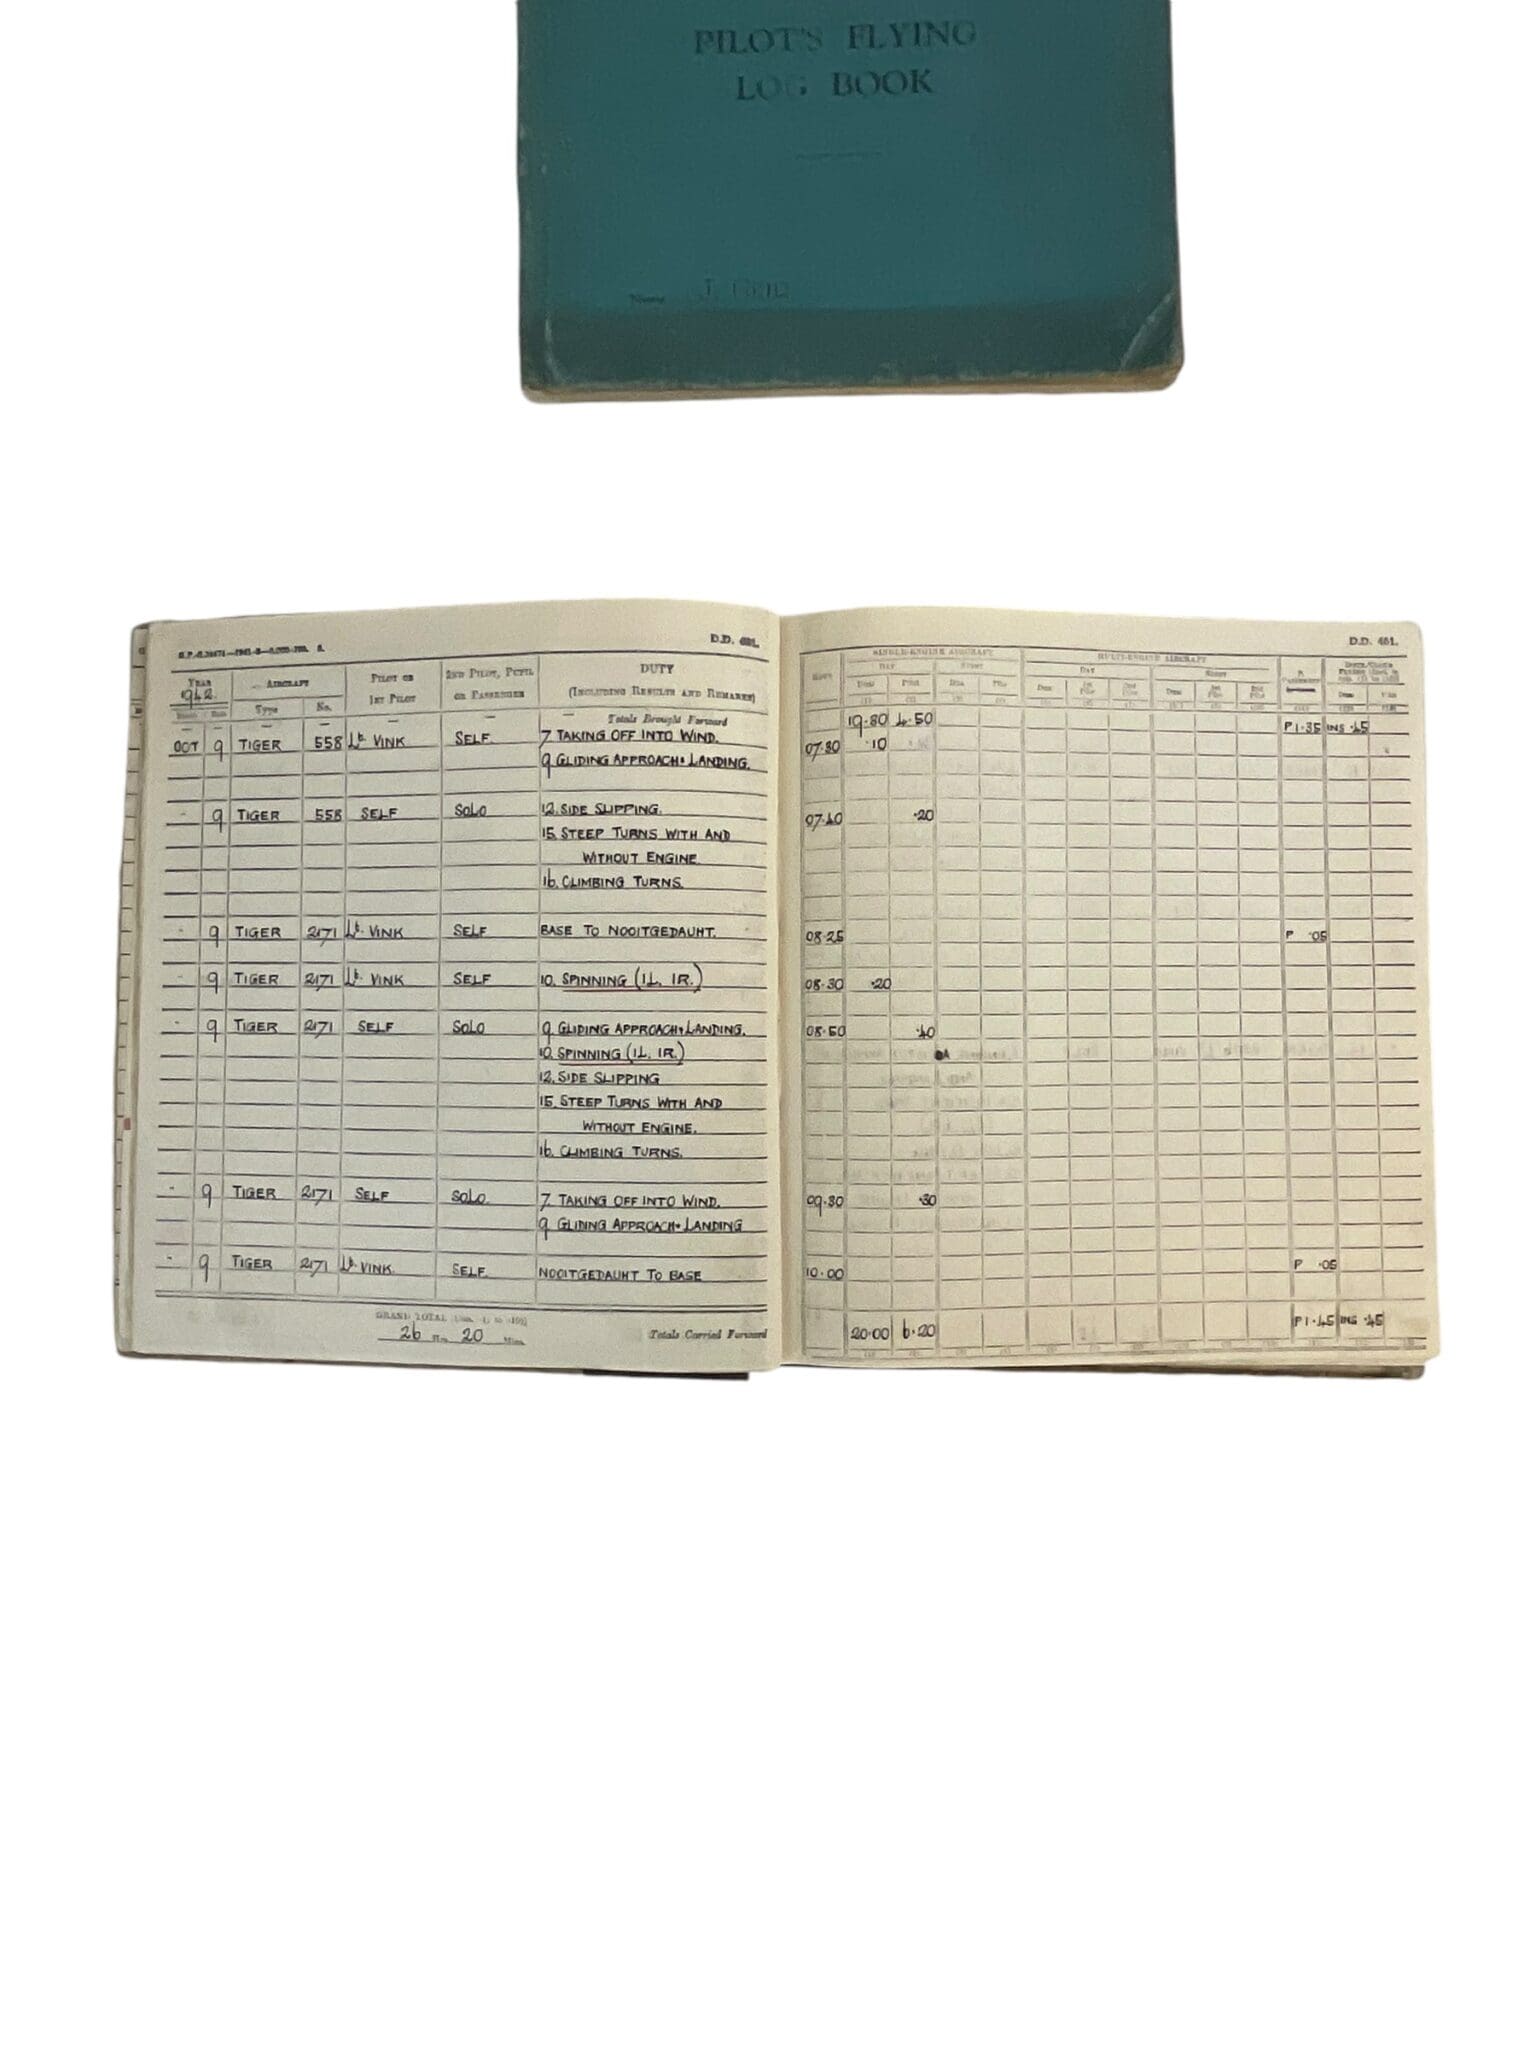 PILOT'S FLYING
LOG BOOK
Name J.
D.D. 461.
YEAR 1942. AIRCRAFT PILOT OR 1ST PILOT 2ND PILOT, PUPIL OR PASSENGER DUTY (INCLUDING RESULTS AND REMARKS)
Type No.
Totals Brought Forward
OCT 9 TIGER 558 Lt. VINK SELF. 7. TAKING OFF INTO WIND.
9. GLIDING APPROACH + LANDING.
- 9 TIGER 558 SELF SOLO 12. SIDE SLIPPING.
15. STEEP TURNS WITH AND
WITHOUT ENGINE.
16. CLIMBING TURNS.
- 9 TIGER 2171 Lt. VINK SELF BASE TO NOOITGEDAUHT.
- 9 TIGER 2171 Lt. VINK SELF 10. SPINNING (1L. 1R.)
- 9 TIGER 2171 SELF SOLO 9. GLIDING APPROACH + LANDING.
10. SPINNING (1L. 1R.)
12. SIDE SLIPPING
15. STEEP TURNS WITH AND
WITHOUT ENGINE.
16. CLIMBING TURNS.
- 9 TIGER 2171 SELF SOLO. 7. TAKING OFF INTO WIND.
9. GLIDING APPROACH + LANDING
- 9 TIGER 2171 Lt. VINK. SELF. NOOITGEDAUHT TO BASE
GRAND TOTAL
26 Hrs. 20 Mins. Totals Carried Forward
D.D. 461.
SINGLE-ENGINE AIRCRAFT MULTI-ENGINE AIRCRAFT
DAY NIGHT DAY NIGHT
Dual Pilot Dual Pilot Dual 1st Pilot 2nd Pilot Dual 1st Pilot 2nd Pilot Dual
19.30 4.50 P1.35 INS .45
07.30 .10
07.40 .20
08.25 P .05
08.30 .20
08.50 .40
09.30 .30
10.00 P .05
20.00 6.20 P1.45 INS .45